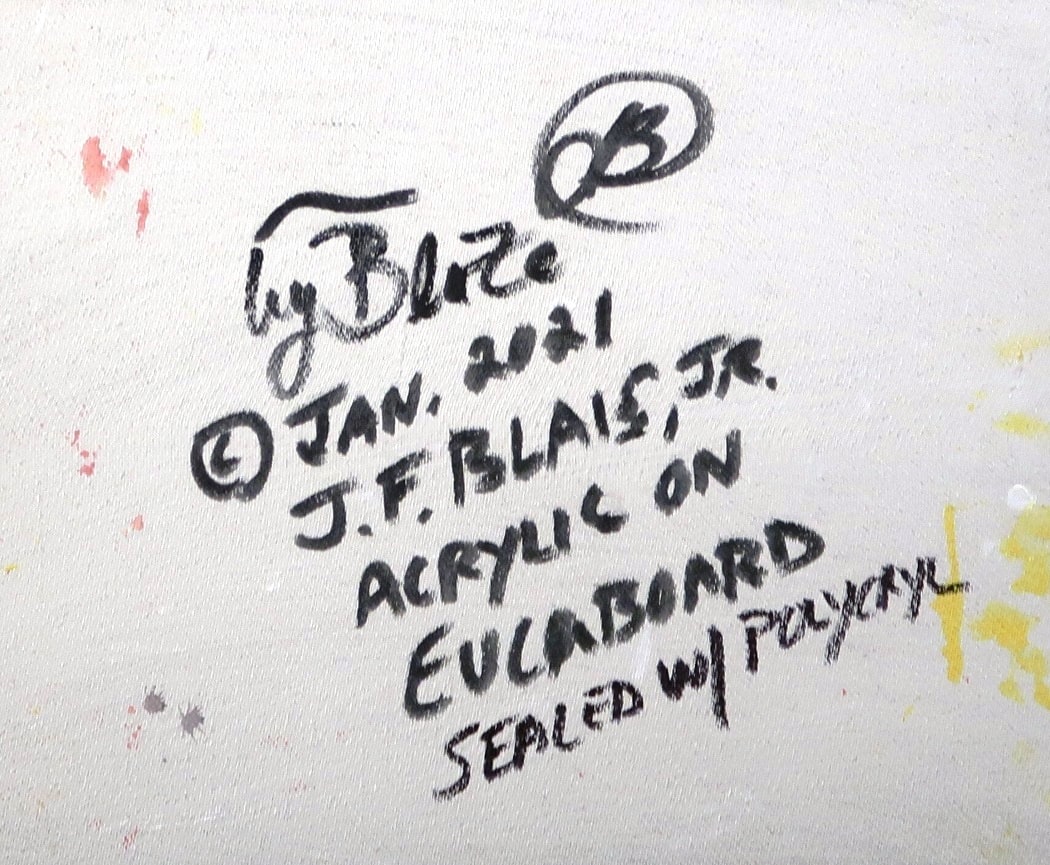 by Blaze
© JAN. 2021
J.F. BLAIS, JR.
ACRYLIC ON
EUCABOARD
SEALED W/ POLYCRYL